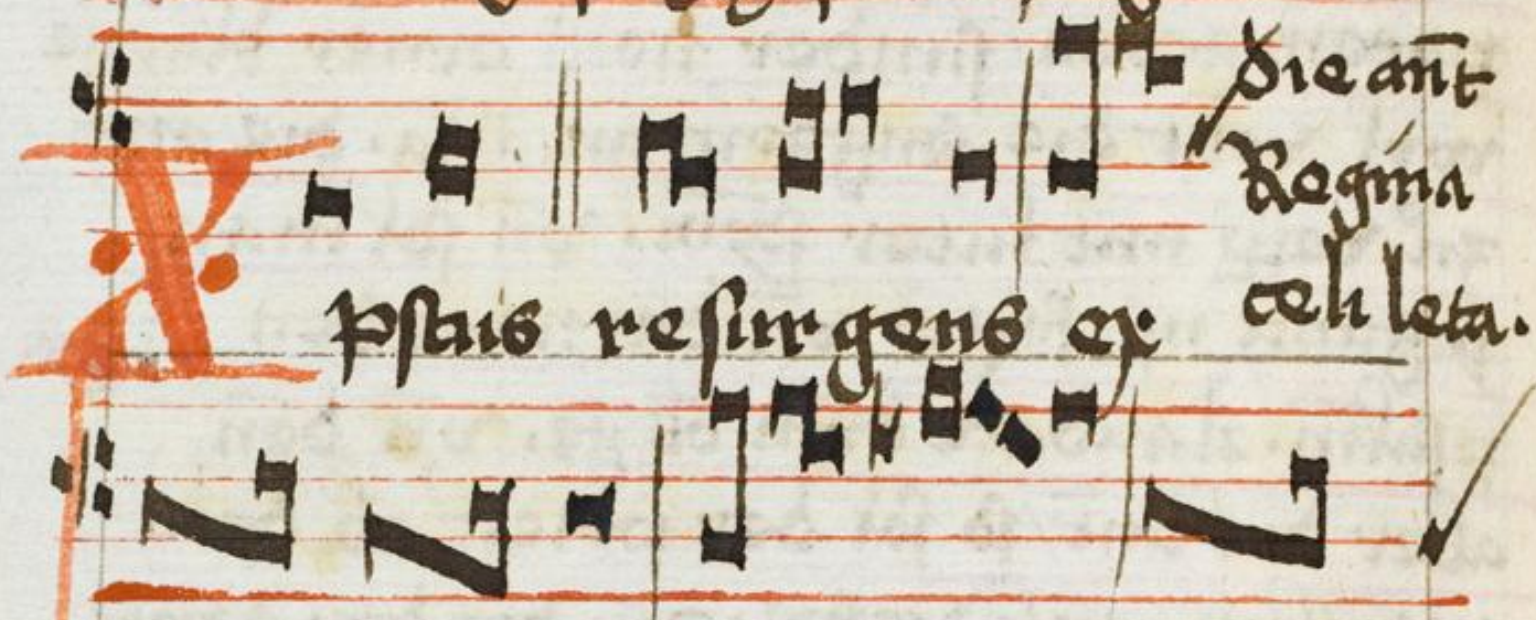 Xpstus resurgens ex
die ant
Regina
celi leta.